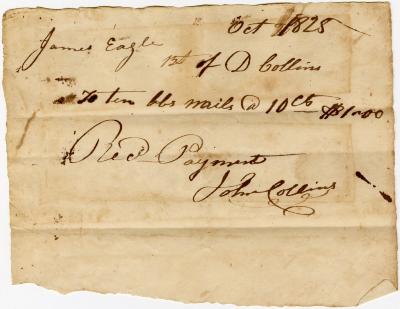 Oct 1825
James Eagle
Bt of D Collins
To ten lbs nails @ 10cts $1.00
Recd Payment
John Collins